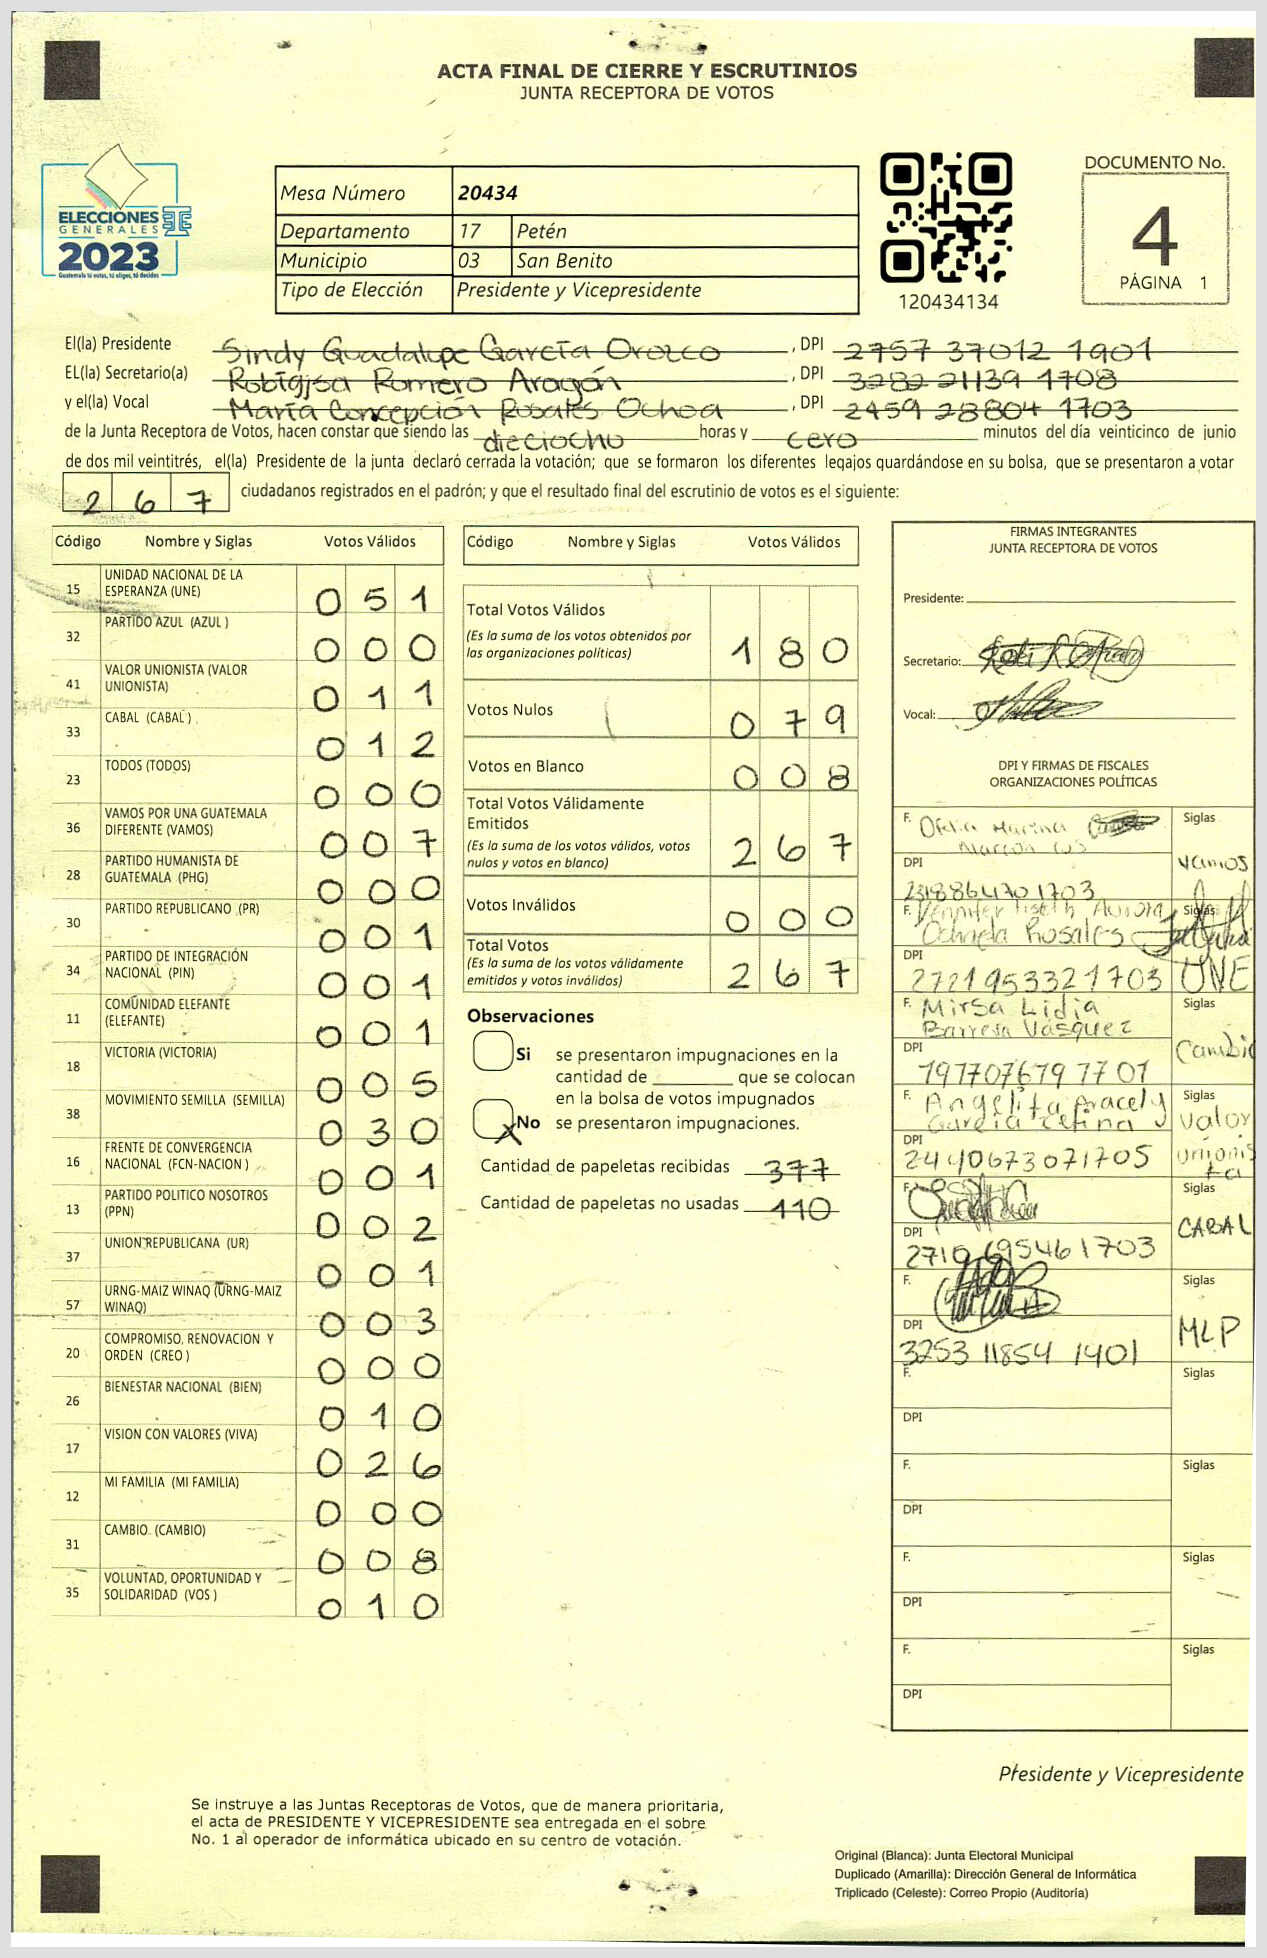 ACTA FINAL DE CIERRE Y ESCRUTINIOS
JUNTA RECEPTORA DE VOTOS
ELECCIONES
GENERALES
2023
Guatemala tú votas, tú eliges, tú decides
Mesa Número 20434
Departamento 17 Petén
Municipio 03 San Benito
Tipo de Elección Presidente y Vicepresidente
120434134
DOCUMENTO No.
4
PÁGINA 1
El(la) Presidente Sindy Guadalupe García Orozco, DPI 2757 37012 1901
EL(la) Secretario(a) Robigjsa Romero Aragón, DPI 3282 21139 1708
y el(la) Vocal María Concepción Rosales Ochoa, DPI 2459 28804 1703
de la Junta Receptora de Votos, hacen constar que siendo las dieciocho horas y cero minutos del día veinticinco de junio
de dos mil veintitrés, el(la) Presidente de la junta declaró cerrada la votación; que se formaron los diferentes legajos guardándose en su bolsa, que se presentaron a votar
267 ciudadanos registrados en el padrón; y que el resultado final del escrutinio de votos es el siguiente:
Código Nombre y Siglas Votos Válidos
15 UNIDAD NACIONAL DE LA ESPERANZA (UNE) 051
32 PARTIDO AZUL (AZUL ) 000
41 VALOR UNIONISTA (VALOR UNIONISTA) 011
33 CABAL (CABAL ) 012
23 TODOS (TODOS) 000
36 VAMOS POR UNA GUATEMALA DIFERENTE (VAMOS) 007
28 PARTIDO HUMANISTA DE GUATEMALA (PHG) 000
30 PARTIDO REPUBLICANO (PR) 001
34 PARTIDO DE INTEGRACIÓN NACIONAL (PIN) 001
11 COMUNIDAD ELEFANTE (ELEFANTE) 001
18 VICTORIA (VICTORIA) 005
38 MOVIMIENTO SEMILLA (SEMILLA) 030
16 FRENTE DE CONVERGENCIA NACIONAL (FCN-NACION ) 001
13 PARTIDO POLITICO NOSOTROS (PPN) 002
37 UNION REPUBLICANA (UR) 001
57 URNG-MAIZ WINAQ (URNG-MAIZ WINAQ) 003
20 COMPROMISO, RENOVACION Y ORDEN (CREO ) 000
26 BIENESTAR NACIONAL (BIEN) 010
17 VISION CON VALORES (VIVA) 026
12 MI FAMILIA (MI FAMILIA) 000
31 CAMBIO. (CAMBIO) 008
35 VOLUNTAD, OPORTUNIDAD Y SOLIDARIDAD (VOS ) 010
Código Nombre y Siglas Votos Válidos
Total Votos Válidos 180
(Es la suma de los votos obtenidos por
las organizaciones políticas)
Votos Nulos 079
Votos en Blanco 008
Total Votos Válidamente
Emitidos 267
(Es la suma de los votos válidos, votos
nulos y votos en blanco)
Votos Inválidos 000
Total Votos 267
(Es la suma de los votos válidamente
emitidos y votos inválidos)
Observaciones
Si se presentaron impugnaciones en la
cantidad de ________ que se colocan
en la bolsa de votos impugnados
X No se presentaron impugnaciones.
Cantidad de papeletas recibidas 377
Cantidad de papeletas no usadas 110
FIRMAS INTEGRANTES
JUNTA RECEPTORA DE VOTOS
Presidente:
Secretario:
Vocal:
DPI Y FIRMAS DE FISCALES
ORGANIZACIONES POLÍTICAS
F. Ofelia Marina Siglas
DPI Vamos
231886470 1703
F. Jennifer Liseth Aurora Siglas
Rosales
DPI UNE
2721953321703
F. Mirsa Lidia Siglas
Vásquez
DPI Cambio
1977076797701
F. Angelita Aracely Siglas
García Cetina Valor
DPI unionis
2440673071705 ta
F. Siglas
DPI CABAL
2710 695461703
F. Siglas
DPI MLP
3253 11854 1401
F. Siglas
DPI
F. Siglas
DPI
F. Siglas
DPI
F. Siglas
DPI
Presidente y Vicepresidente
Se instruye a las Juntas Receptoras de Votos, que de manera prioritaria,
el acta de PRESIDENTE Y VICEPRESIDENTE sea entregada en el sobre
No. 1 al operador de informática ubicado en su centro de votación.
Original (Blanca): Junta Electoral Municipal
Duplicado (Amarilla): Dirección General de Informática
Triplicado (Celeste): Correo Propio (Auditoría)